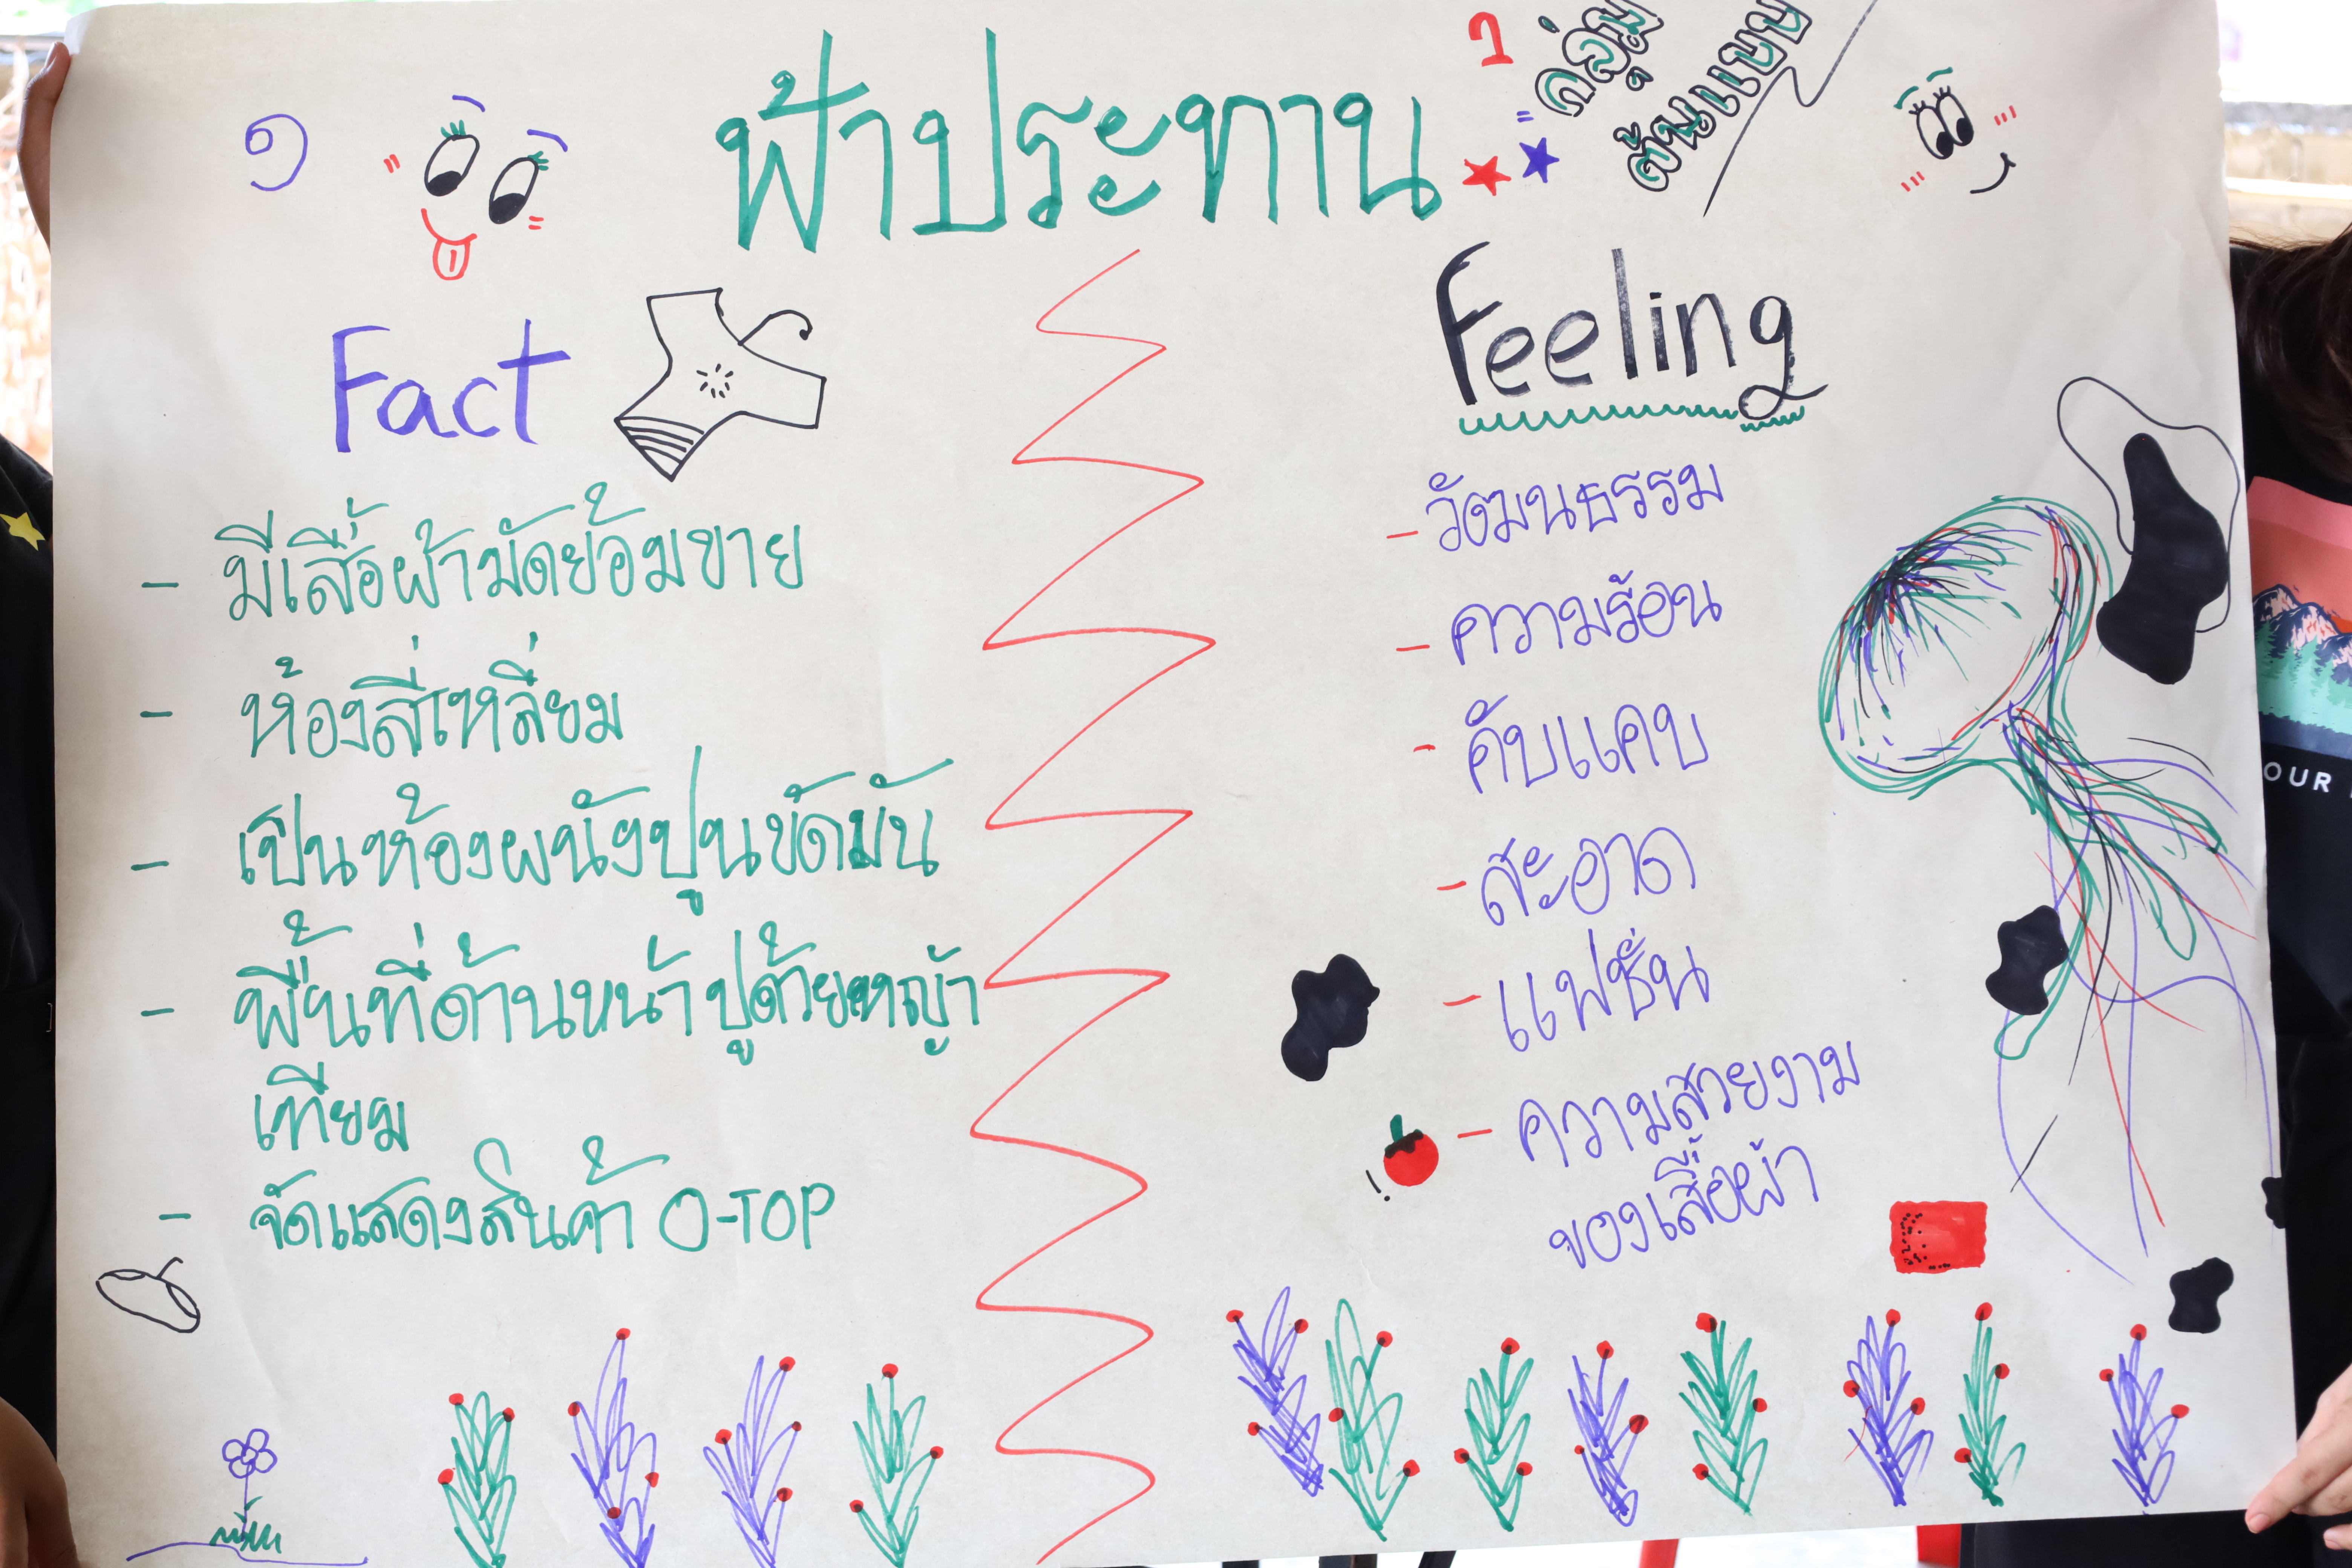 ๑
ฟ้าประทาน
1
กลุ่ม
ต้นแบบ
Fact
- มีเสื้อผ้ามัดย้อมขาย
- ห้องสี่เหลี่ยม
- เป็นห้องผนังปูนขัดมัน
- พื้นที่ด้านหน้าปูด้วยหญ้า
เทียม
- จัดแสดงสินค้า O-TOP
Feeling
- วัฒนธรรม
- ความร้อน
- คับแคบ
- สะอาด
- แฟชั่น
- ความสวยงาม
ของเสื้อผ้า
OUR